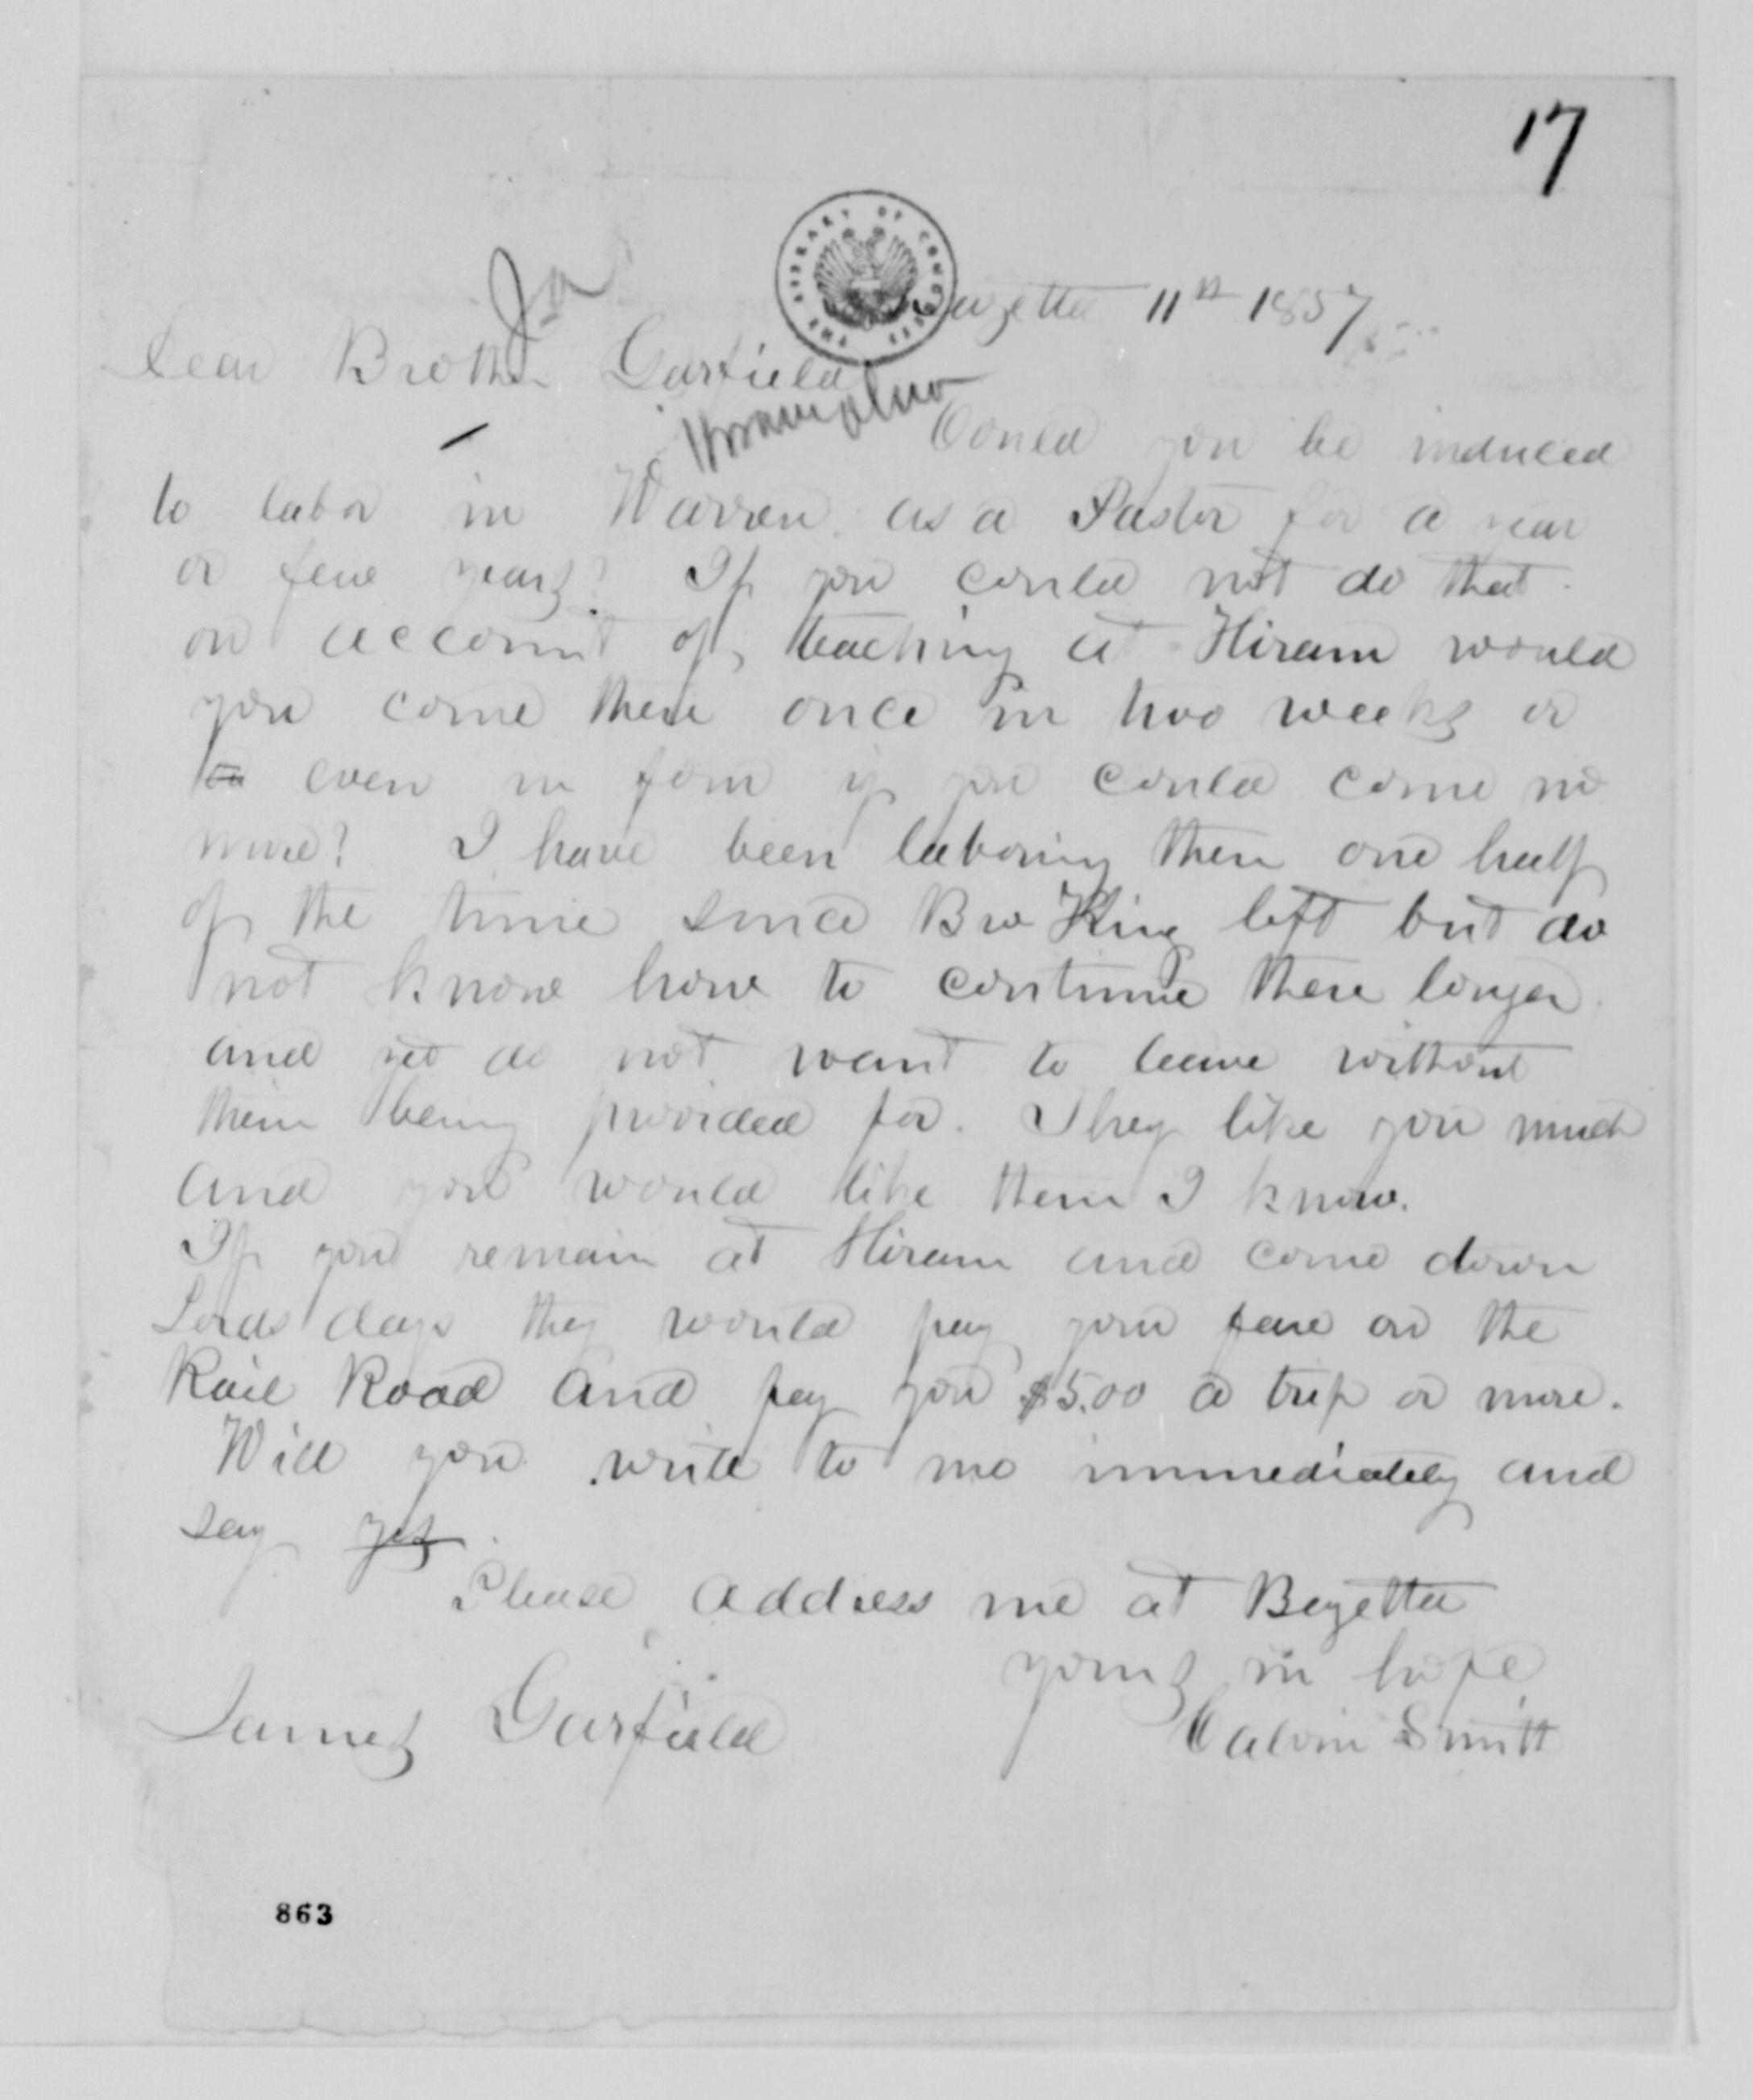 17
THE LIBRARY OF CONGRESS
Ja
11th 1857
Dear Brother Garfield
Could you be induced
to labor in Warren as a Pastor for a year
or few years? If you could not do that
on account of teaching at Hiram would
you come there once in two weeks or
even in four if you could come no
more? I have been laboring there one half
of the time since Bro King left but do
not know how to continue there longer
and yet do not want to leave without
them being provided for. They like you much
and you would like them I know.
If you remain at Hiram and come down
Lords days they would pay your fare on the
Rail Road and pay you $5.00 a trip or more.
Will you write to me immediately and
say yes
Please address me at Bazetta
yours in hope
Calvin Smith
James Garfield
863